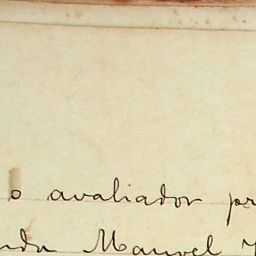 o avaliador pr
nda Manoel J